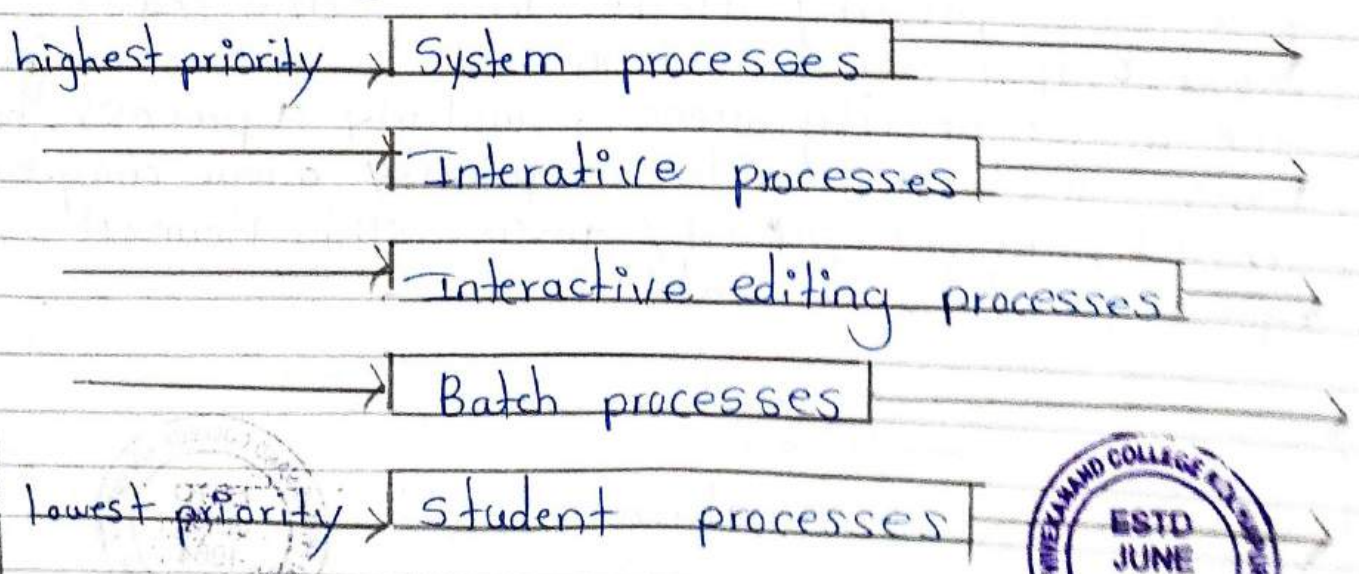 highest priority System processes
Interative processes
Interactive editing processes
Batch processes
lowest priority student processes
ESTD
JUNE